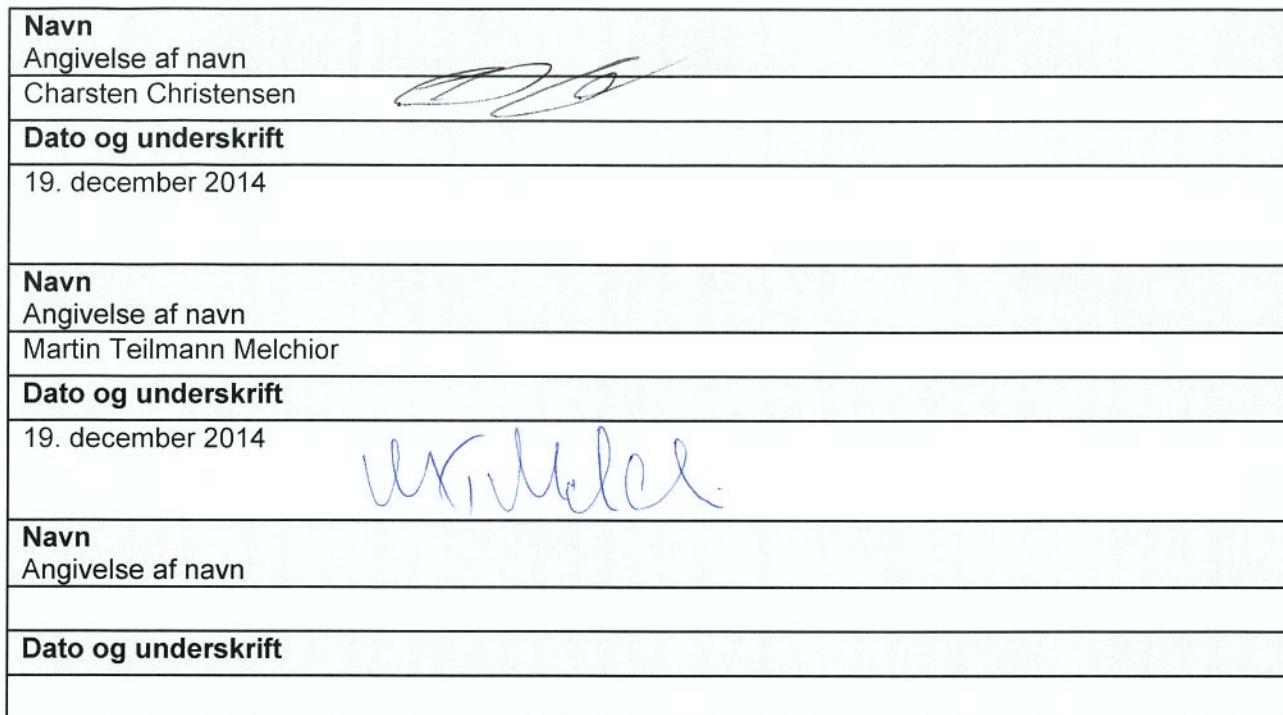 Navn
Angivelse af navn
Charsten Christensen
Dato og underskrift
19. december 2014
Navn
Angivelse af navn
Martin Teilmann Melchior
Dato og underskrift
19. december 2014
Navn
Angivelse af navn
Dato og underskrift